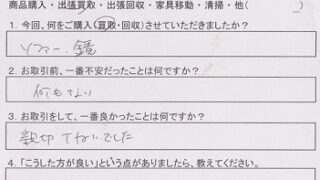 商品購入・出張買取・出張回収・家具移動・清掃・他(　　_)
1. 今回、何をご購入(買取・回収)させていただきましたか？
ソファー、鏡
2. お取引前、一番不安だったことは何ですか？
何もない
3. お取引をして、一番良かったことは何ですか？
親切でていねいでした
4. 「こうした方が良い」という点がありましたら、教えてください。